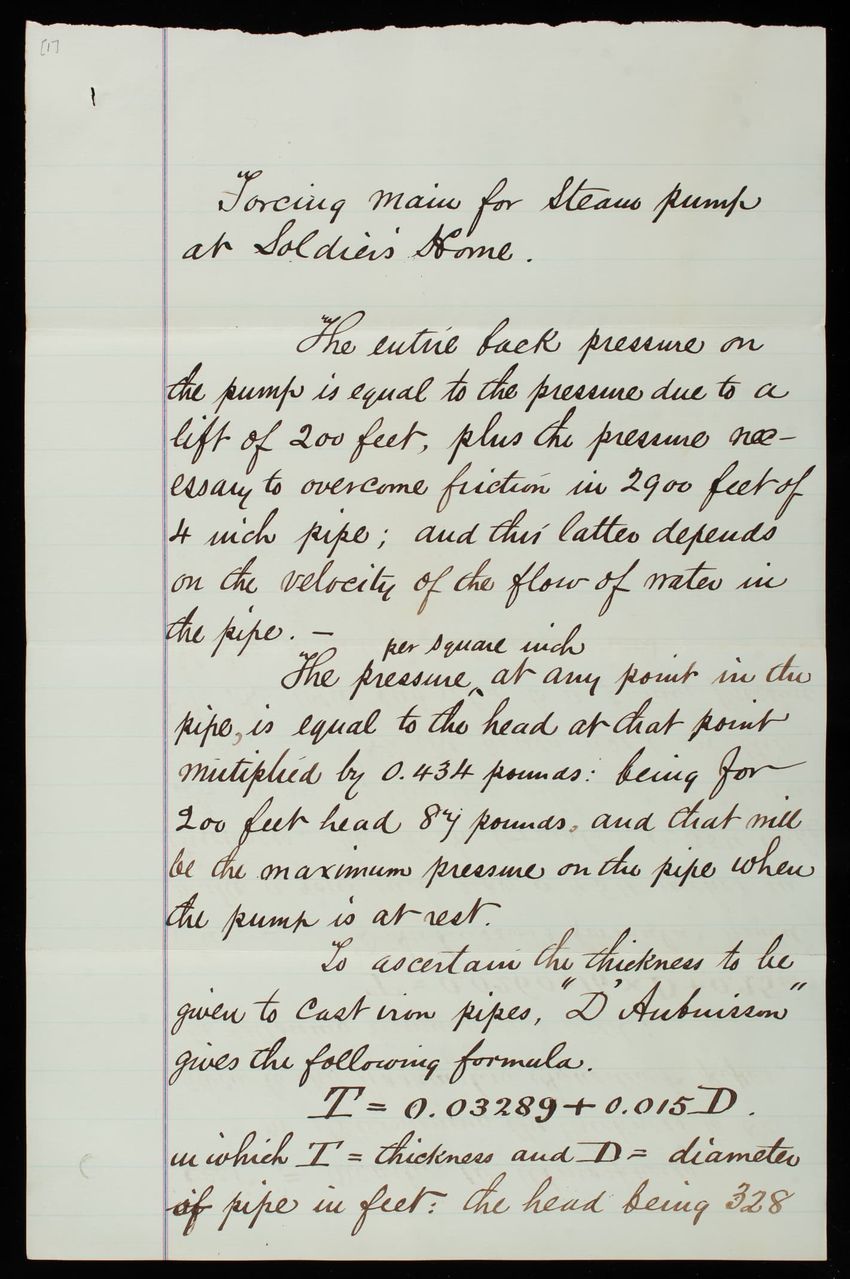 [1]
1
Forcing main for Steam pump
at Soldier's Home.
The entire back pressure on
the pump is equal to the pressure due to a
lift of 200 feet, plus the pressure nec-
essary to overcome friction in 2900 feet of
4 inch pipe; and this latter depends
on the velocity of the flow of water in
the pipe. —
per square inch
The pressure ‸ at any point in the
pipe, is equal to the head at that point
mutiplied by 0.434 pounds: being for
200 feet head 87 pounds, and that will
be the maximum pressure on the pipe when
the pump is at rest.
To ascertain the thickness to be
given to Cast iron pipes, "D'Aubuisson"
gives the following formula.
T = 0.03289 + 0.015 D.
in which T = thickness and D = diameter
of pipe in feet: the head being 328